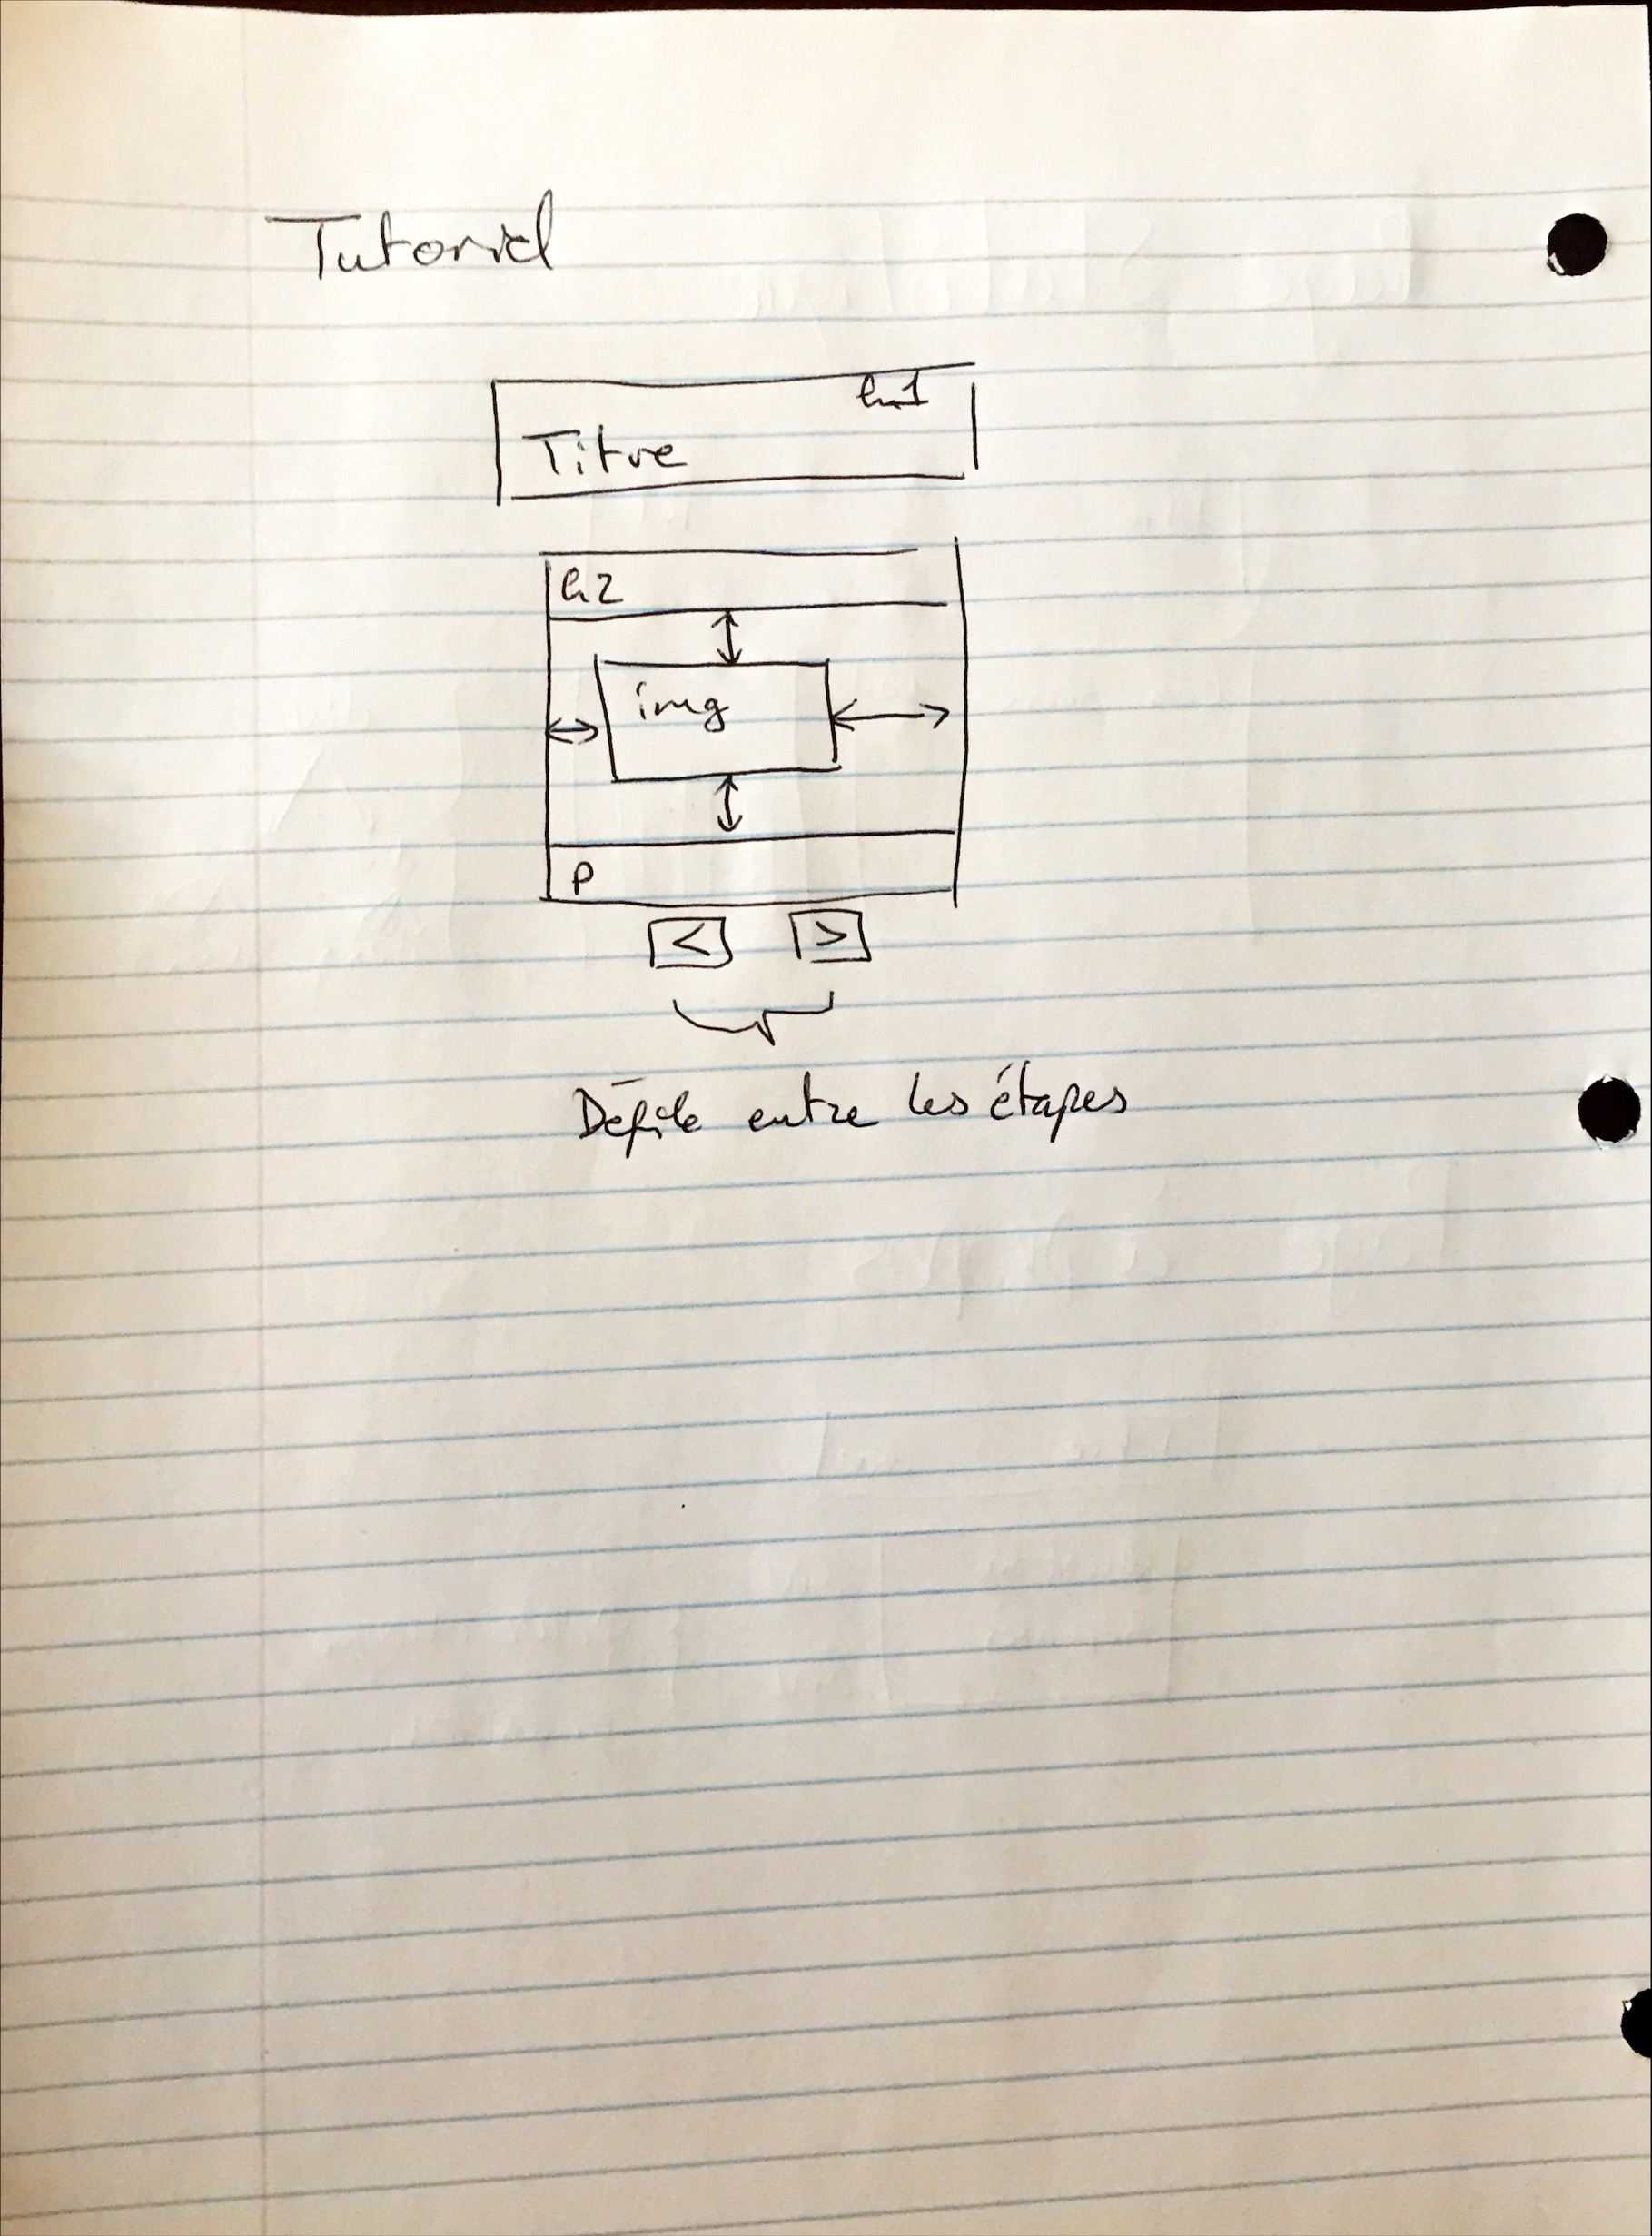 Tutoriel
h1
Titre
h2
img
p
< >
Défile entre les étapes